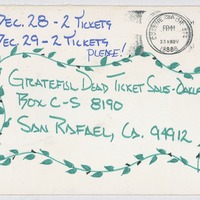 Dec. 28 - 2 Tickets
Dec 29 - 2 Tickets
please!
PM
Grateful Dead Ticket Sales-Oakl
Box C-S 8190
San Rafael, Ca. 94912